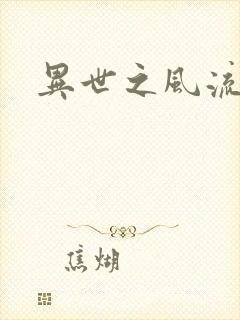 異世之風流
焦煳